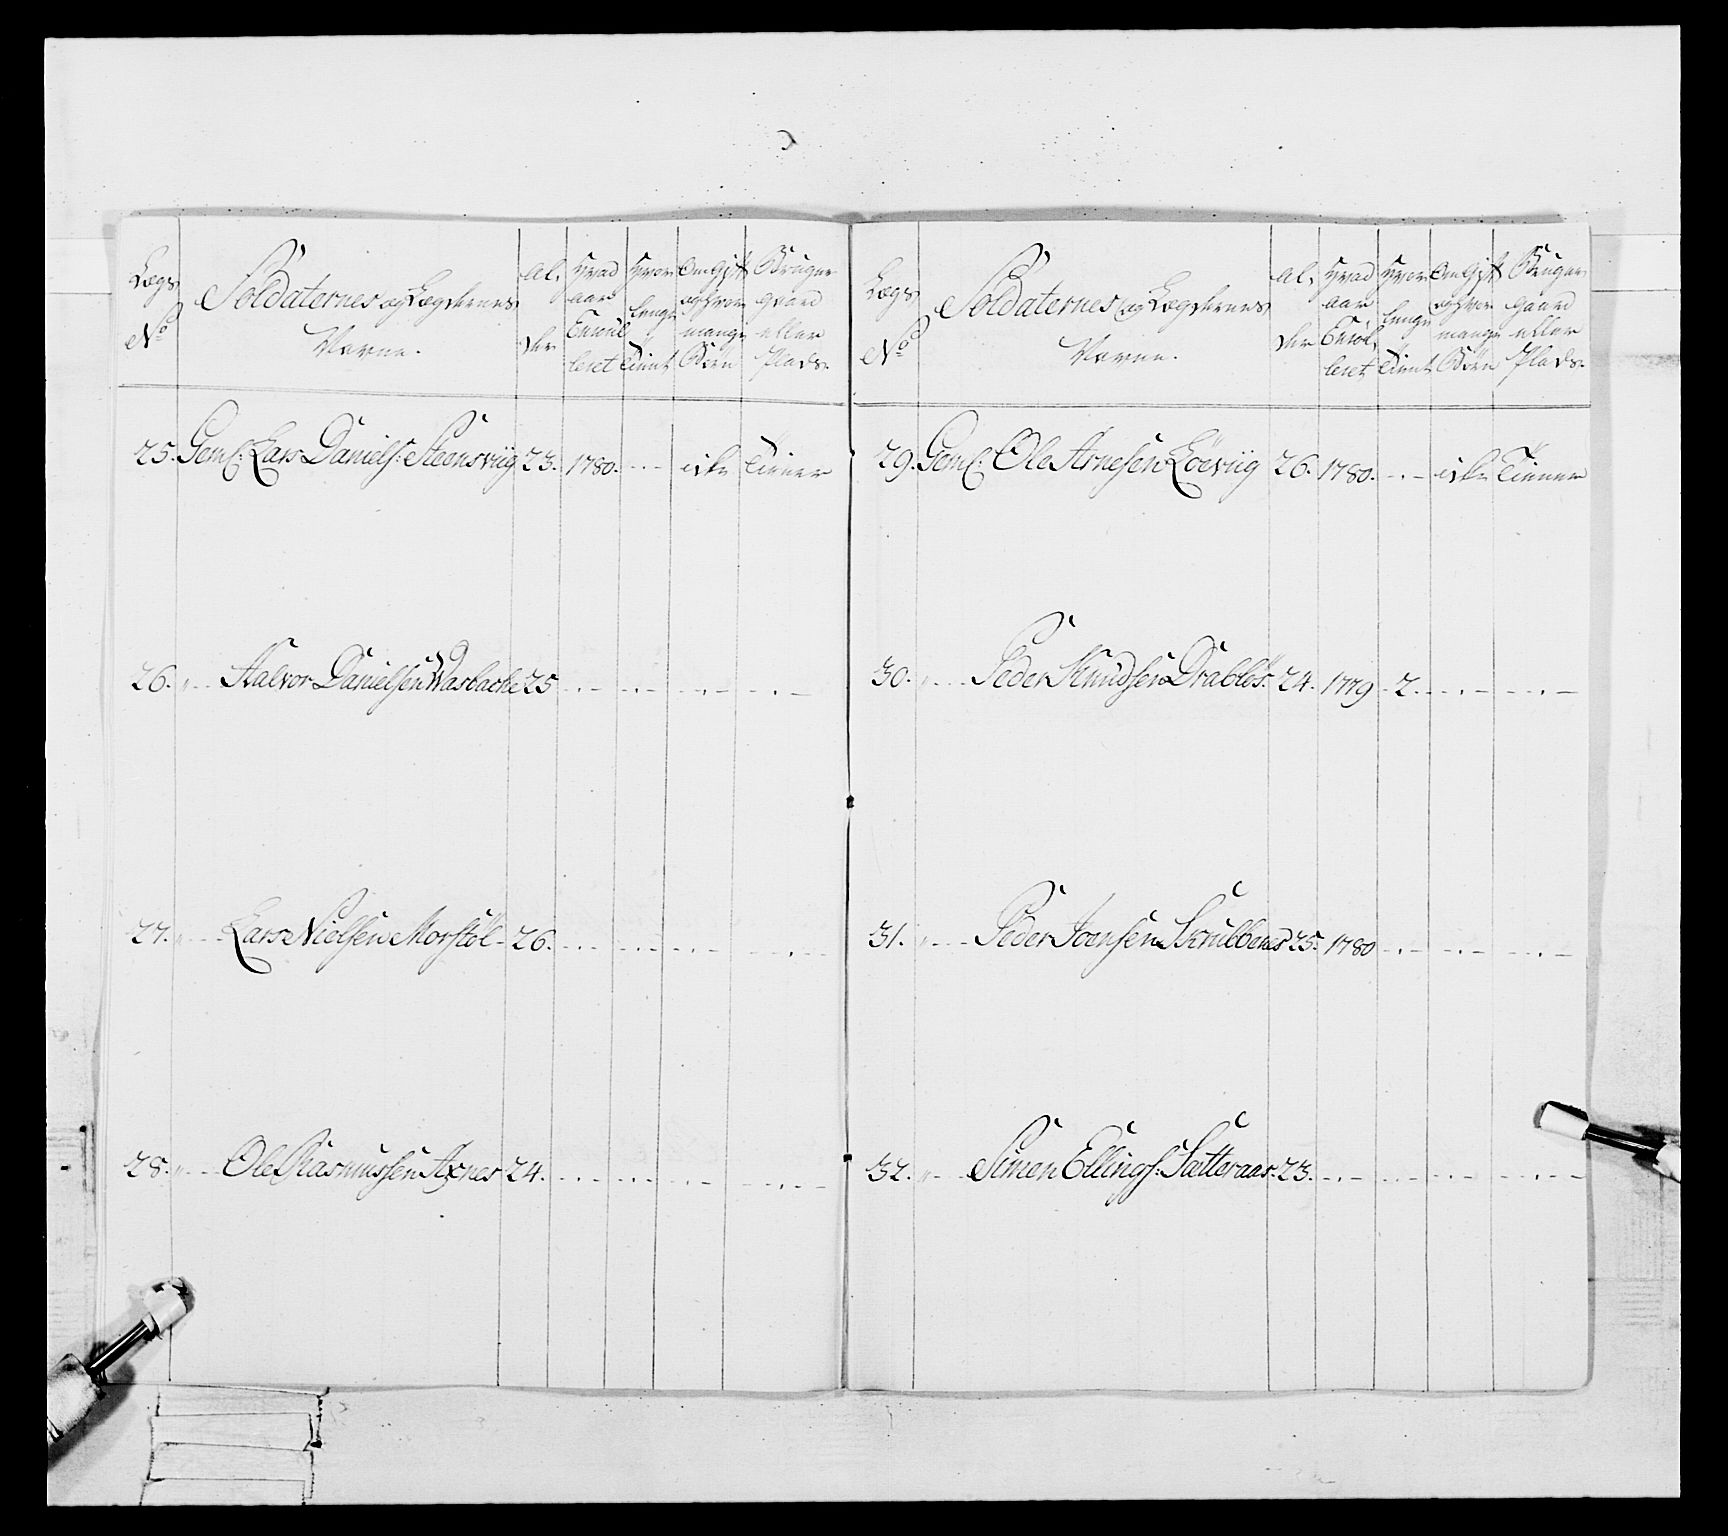 Lægs No
Soldaternes og Lægdernes Navne.
Al, der
Hvad aar Enrol leret
Hvor længe Tient
Om Gift og Hvor mange Børn
Bruger Gaard eller Plads.
25. Geml: Lars Daniels: Steensviig 23. 1780. - . - icke Tiener
26. „ - - Halvor Danielsen Wasbache 25 - . - - . - - . - - . -
27. „ - - Lars Nielsen Morstöl - 26. - . - - . - - . - - . -
28. „ - - Ole Rasmussen Axnes 24. - . - - . - - . - - . -
Lægs No
Soldaternes og Lægdernes Navne.
Al, der
Hvad aar Enrol, leret
Hvor længe Tient
Om Gift og Hvor mange Børn
Bruger Gaard eller Plads.
29. Geml: Ole Arnesen Löeviig 26. 1780. - . - icke Tiener
30. „ - - Peder Knudsen Drabløs. 24. 1779 - 2. - . - - . -
31. „ - - Peder Joensen Skrubbenes 25. 1780 - . - - . - - . -
32. „ - - Simen Ellings: Sætteraas. 23. - . - - . - - . - - . -